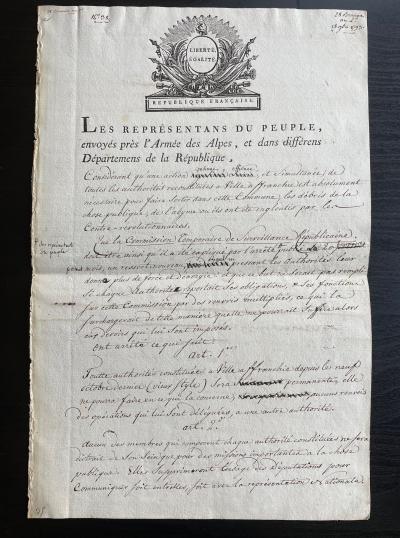 N.° 38.
28 Brumaire
an 2.
18 9bre 1793
LIBERTÉ
ÉGALITÉ
RÉPUBLIQUE FRANÇAISE.
LES REPRÉSENTANS DU PEUPLE,
envoyés près l'Armée des Alpes, et dans différens
Départemens de la République,
Considérant qu'une action prompte et simultanée, de
toutes les authorités reconstituées a Ville affranchie est absolument
necessaire pour faire sortir dans cette Commune, les débris de la
chose publique, de l'abyme ou ils ont été engloutis par les
Contre-revolutionnaires.
Que la Commission Temporaire de Surveillance Republicaine
doit etre ainsi qu'il a été expliqué par l'arreté
des représentants
du peuple
mois, un ressort presant les authorités leur
donne plus de force et d'energie et que ce but ne serait pas rempli
si chaque Authorité rejettait ses obligations, & ses fonctions
sur cette Commission par des renvois multipliés, ce qui la
surchargerait de telle manière quelle ne pourrait suffire alors
aux devoirs qui lui sont imposés.
ont arrêté ce qui suit.
art. 1er
Toutte authorité constituée a Ville affranchie depuis le neuf
octobre dernier (vieux style) sera permanente, elle
ne pourra faire en ce qui la concerne, aucuns renvois
des opérations qui lui sont déléguées, a une autre authorité.
art. 2.
aucun des membres qui composent chaque authorité constituée ne sera
distrait de son sein que pour des missions importantes a la chose
publique. Elles supprimeront l'usage des Députations pour
Communiquer soit entr'elles, soit avec la représentation Nationale